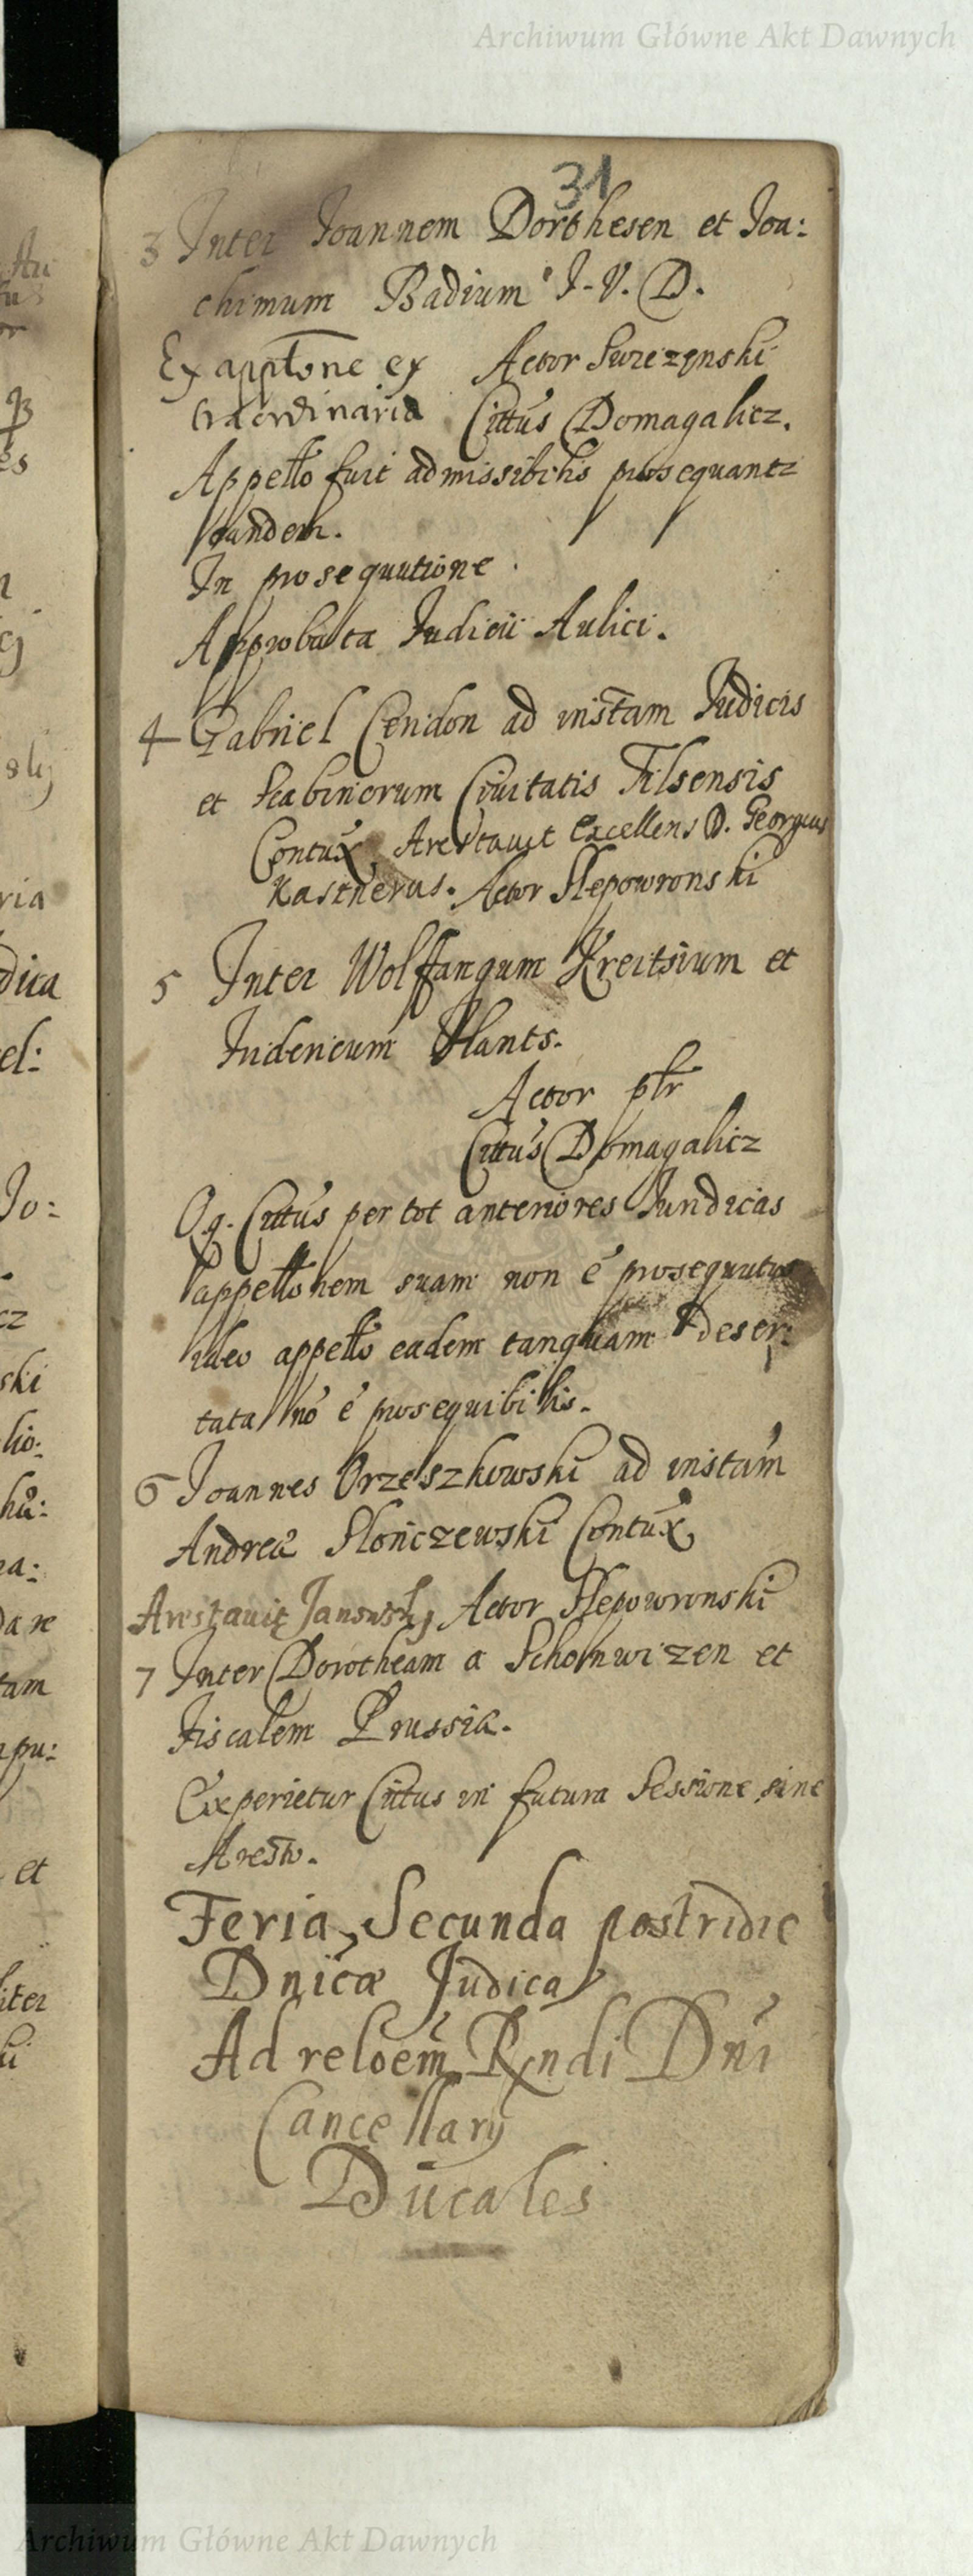 Archiwum Główne Akt Dawnych
31
3 Inter Joannem Dorthesen et Joa:
chimum Badium J. V. D.
Ex appłone ex Actor Swiezynski
traordinaria Cittus Domagalicz.
Appełło fuit admissibilis prosequantr
eandem.
In prosequutione
Approbata Judicii Aulici.
4 Gabriel Cendon ad instam Judicis
et Scabinorum Civitatis Tilsensis
Contux, Arestavit Excellens D. Georgius
Kastnerus. Actor Slepowronski
5 Inter Wolffangum Kreitsium et
Indericum Plants.
Actor płr
Cittus Domagalicz
Qq. Cittus per tot anteriores Jundicas
appełłonem suam non é prosequutus
ideo appełło eadem tanquam deser:
tata nó é prosequibilis.
6 Joannes Orzeszkowski ad instam
Andreæ Slonczewski Contux,
Arestavit Janowskj Actor Slepowronski
7 Inter Dorotheam a Scholnwizen et
Fiscalem Prussiæ.
Experietur Cittus in futura Sessione sine
Aresto.
Feria Secunda postridie
Dnicæ Judica
Ad reloem Rndi Dni
Cancellarij
Ducales
Au
ria
dica
el:
Jo:
cz
ski
lio:
tam
et
iter
Archiwum Główne Akt Dawnych